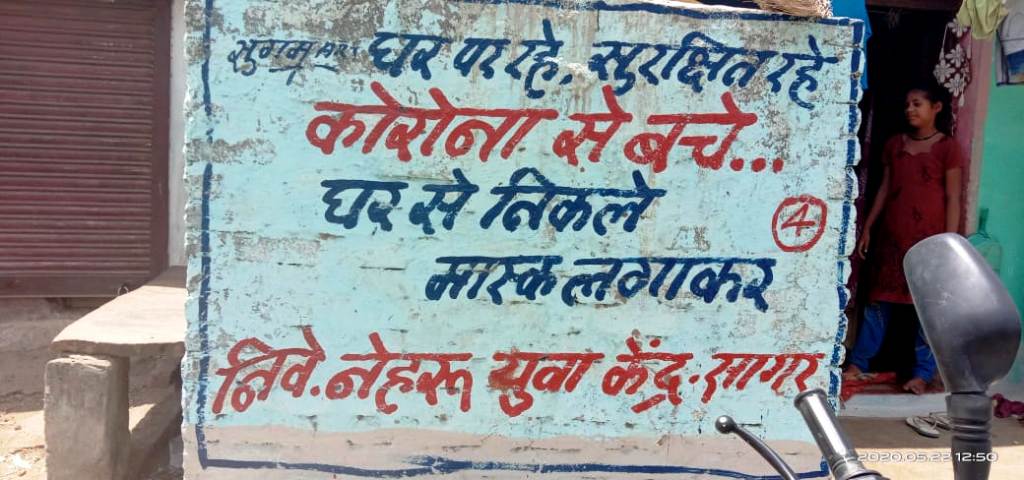 सुगम ART घर पर रहे, सुरक्षित रहे
कोरोना से बचे...
घर से निकले
4
मास्क लगाकर
निवे. नेहरू युवा केंद्र. सागर
2020.05.22 12:50